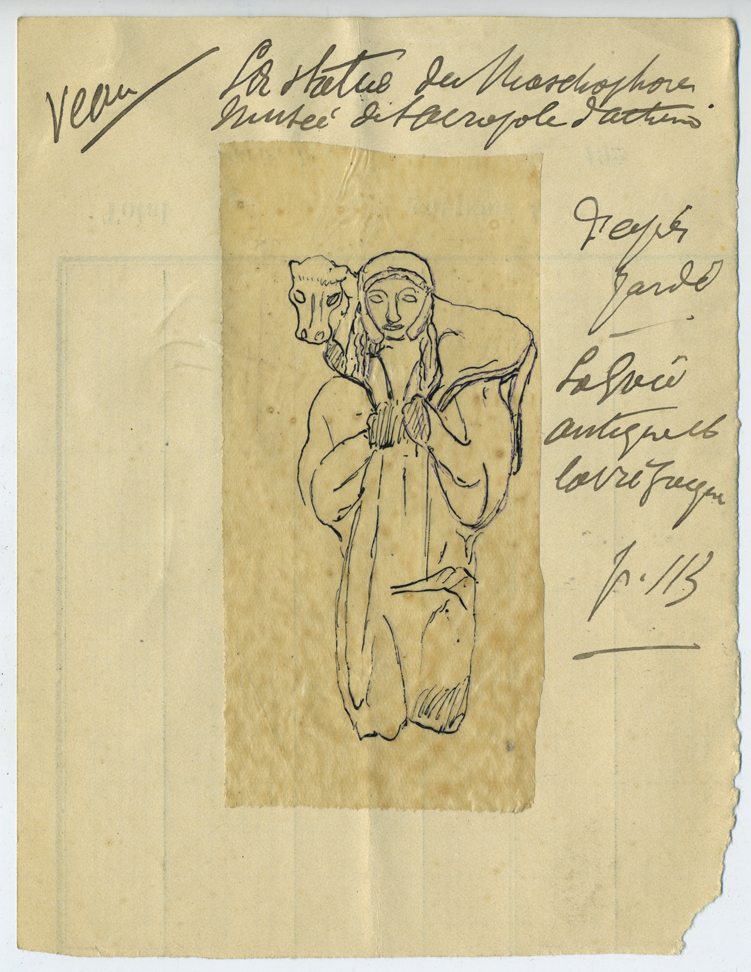 Veau
La statue du Moschophore
Musée de l'acropole d'athènes
d'après
Jardé
La Grèce
antique et
la vie grecque
p. 113